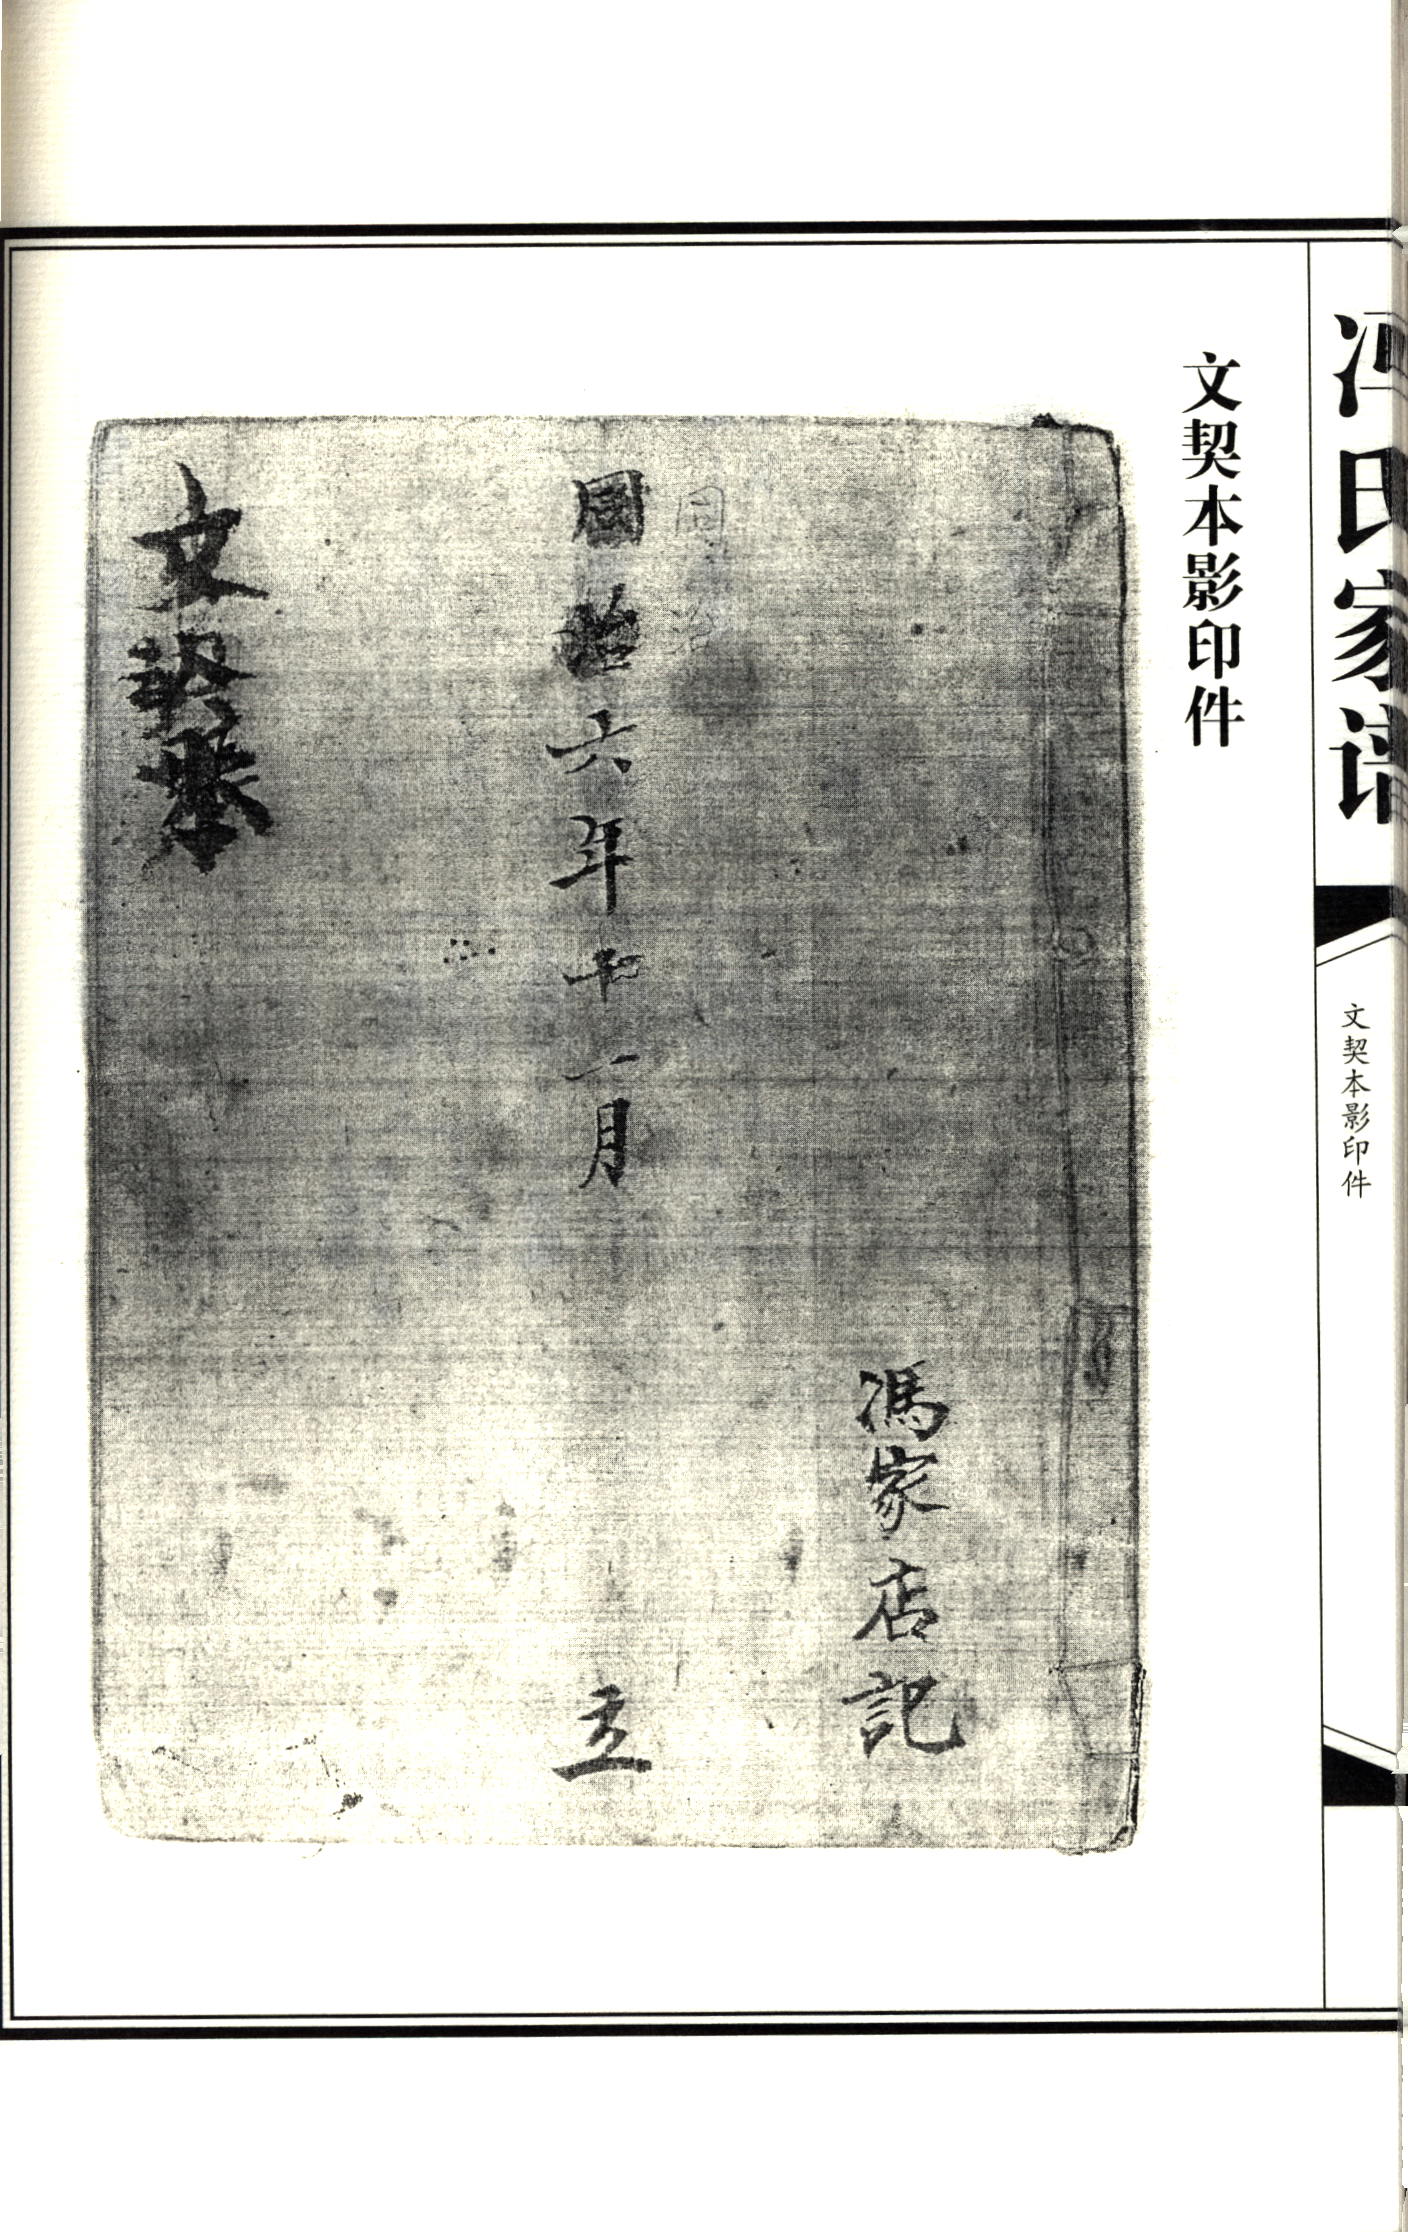 冯氏家谱
文契本影印件
文契本影印件
馮家店記
同治
國治六年十一月 立
文